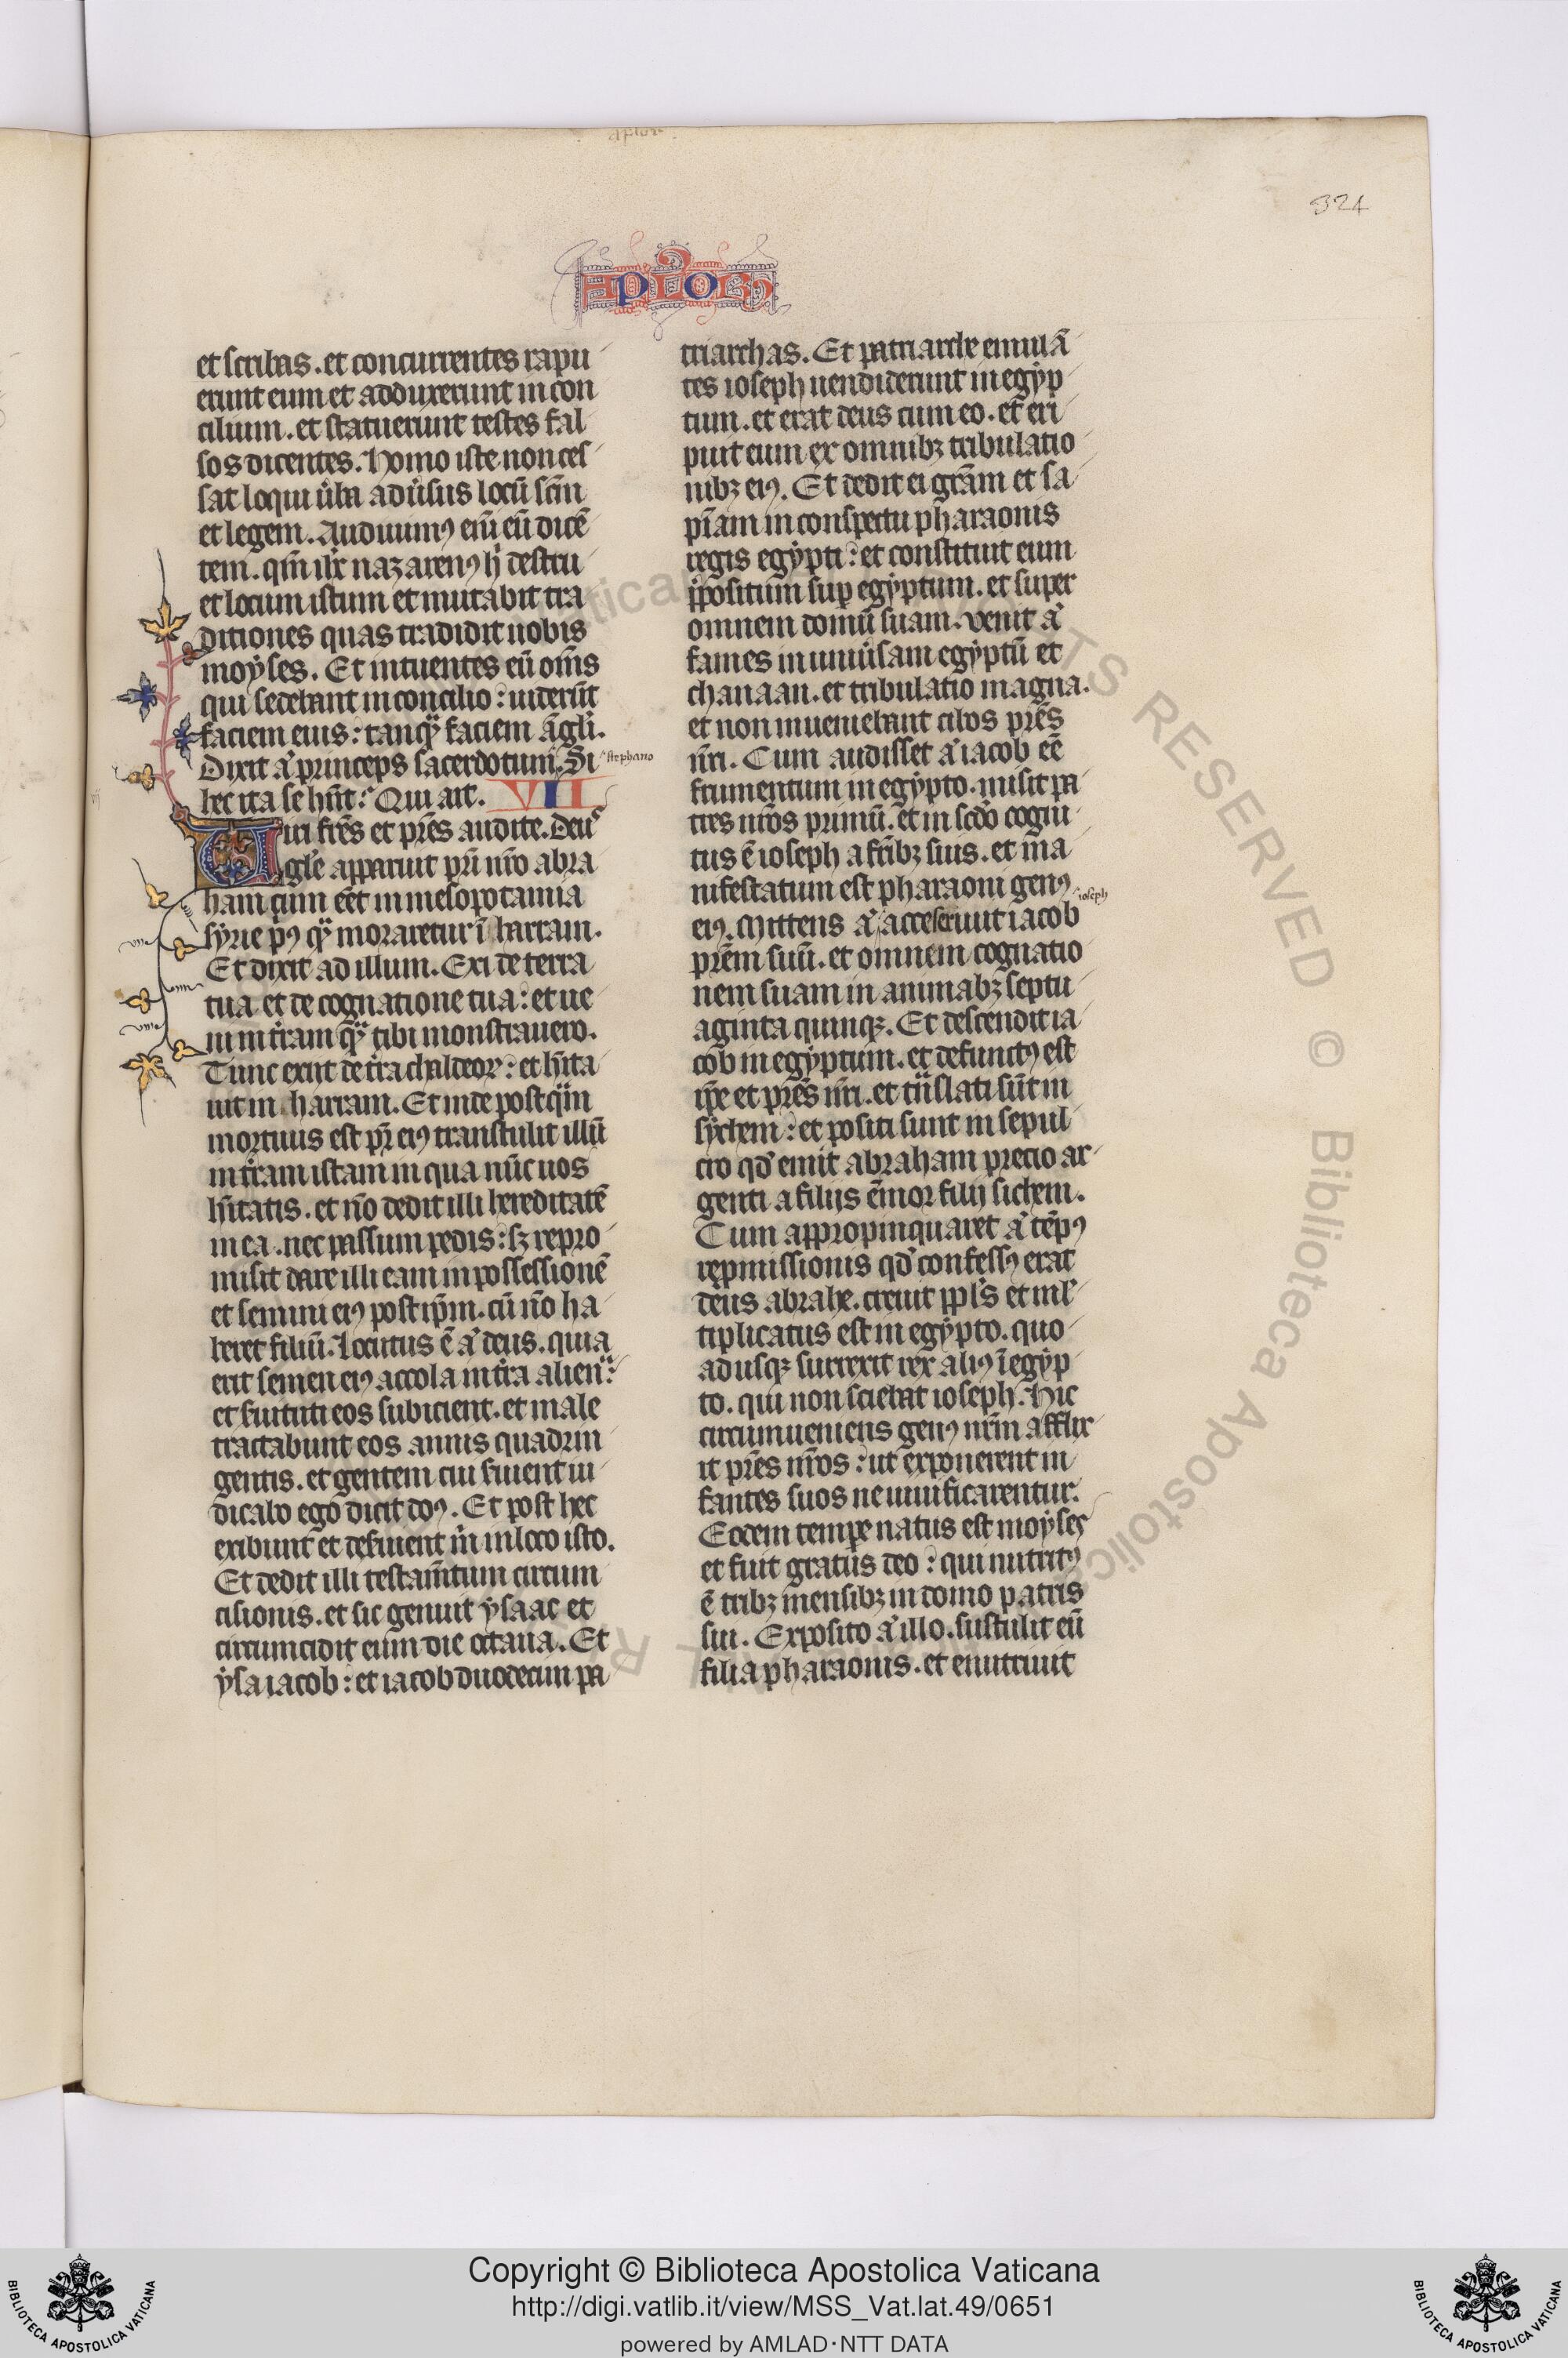 aplor
324
APLORUM
et scribas. et concurrentes rapu
erunt eum et adduxerunt in con
cilium. et statuerunt testes fal
sos dicentes. Homo iste non ces
sat loqui ũba adũsus locũ scm̃
et legem. Audiuimꝰ eni᷒ eũ dicẽ
tem. qm̃ ihc̃ nazarenꝰ h̓ destru
et locum istum et mutabit tra
ditiones quas tradidit nobis
moẏses. Et intuentes eũ om̃s
qui sedebant in concilio: uiderũt
faciem eius: tanqͣ faciem ãgli.
Dixit aͧ princeps sacerdotum. Si
stephano
hec ita se hñt: Qui ait. VII
Uiri fr̃es et pr̃es audite. Deus
gl̃e apparuit pr̃i nr̃o abra
ham cum eẽt in mesopotamia
sẏrie pꝰ qͣ moraretur ĩ harram.
Et dixit ad illum. Exi de terra
tua et de cognatione tua: et ue
ni in tr̃am qͣ tibi monstrauero.
Tunc exiit de tr̃a chaldeoꝝ: et hĩta
uit in harram. Et inde postqͣm
mortuus est pr̃ eiꝰ transtulit illũ
in tr̃am istam in qua nũc uos
hĩtatis. et nõ dedit illi hereditatẽ
in ea. nec passum pedis: sꝫ repro
misit dare illi eam in possessionẽ
et semini eiꝰ post ip̃m. cũ nõ ha
beret filiũ. Locutus ẽ aͧ deus. quia
erit semen eiꝰ accola in tr̃a alienͣ:
et s̃uituti eos subicient. et male
tractabunt eos annis quadrin
gentis. et gentem cui s̃uient iu
dicabo ego dicit dñs. Et post hec
exibunt et des̃uient m̃ in loco isto.
Et dedit illi testam̃tum circum
cisionis. et sic genuit ẏsaac et
circumcidit eum die octaua. Et
ẏsa iacob: et iacob duodecim pa
triarchas. Et patriarche emulã
tes ioseph uendiderunt in egẏp
tum. et erat deus cum eo. et eri
puit eum ex omnibꝫ tribulatio
nibꝫ eiꝰ. Et dedit ei gr̃am et sa
pĩam in conspectu pharaonis
regis egẏpti: et constituit eum
p̃positum suꝑ egẏptum. et super
omnem domũ suam. Venit aͧ
fames in uniũsam egẏptũ et
chanaan. et tribulatio magna.
et non inueniebant cibos pr̃es
nr̃i. Cum audisset aͧ iacob eẽ
frumentum in egẏpto. misit pa
tres nr̃os primũ. et in scd̃o cogni
tus ẽ ioseph a fr̃ibꝫ suis. et ma
nifestatum est pharaoni genꝰ
eiꝰ. Mittens aͧ accersiuit iacob
ioseph
pr̃em suũ. et omnem cognatio
nem suam in animabꝫ septu
aginta quinqꝫ. Et descendit ia
cob in egẏptum. et defunctꝰ est
ip̃e et pr̃es nr̃i. et tͣnslati sũt in
sẏchem: et positi sunt in sepul
cro qd̓ emit abraham precio ar
genti a filijs ẽmor filij sichem.
Cum appropinquaret aͧ tẽpꝰ
repmissionis qd̓ confessꝰ erat
deus abrahe. creuit ppl̃s et ml̓
tiplicatus est in egẏpto. quo
adusqꝫ surrexit rex aliꝰ ĩ egẏp
to. qui non sciebat ioseph. Hic
circumueniens genꝰ nr̃m afflix
it pr̃es nr̃os: ut exponerent in
fantes suos ne uiuificarentur.
Eodem tempe natus est moẏses
et fuit gratus deo: qui nutritꝰ
ẽ tribꝫ mensibꝫ in domo patris
sui. Exposito aͧ illo. sustulit eũ
filia pharaonis. et enutriuit
RESERVED © Biblioteca Apostolica
Copyright © Biblioteca Apostolica Vaticana
http://digi.vatlib.it/view/MSS_Vat.lat.49/0651
powered by AMLAD·NTT DATA
BIBLIOTECA APOSTOLICA VATICANA
BIBLIOTECA APOSTOLICA VATICANA